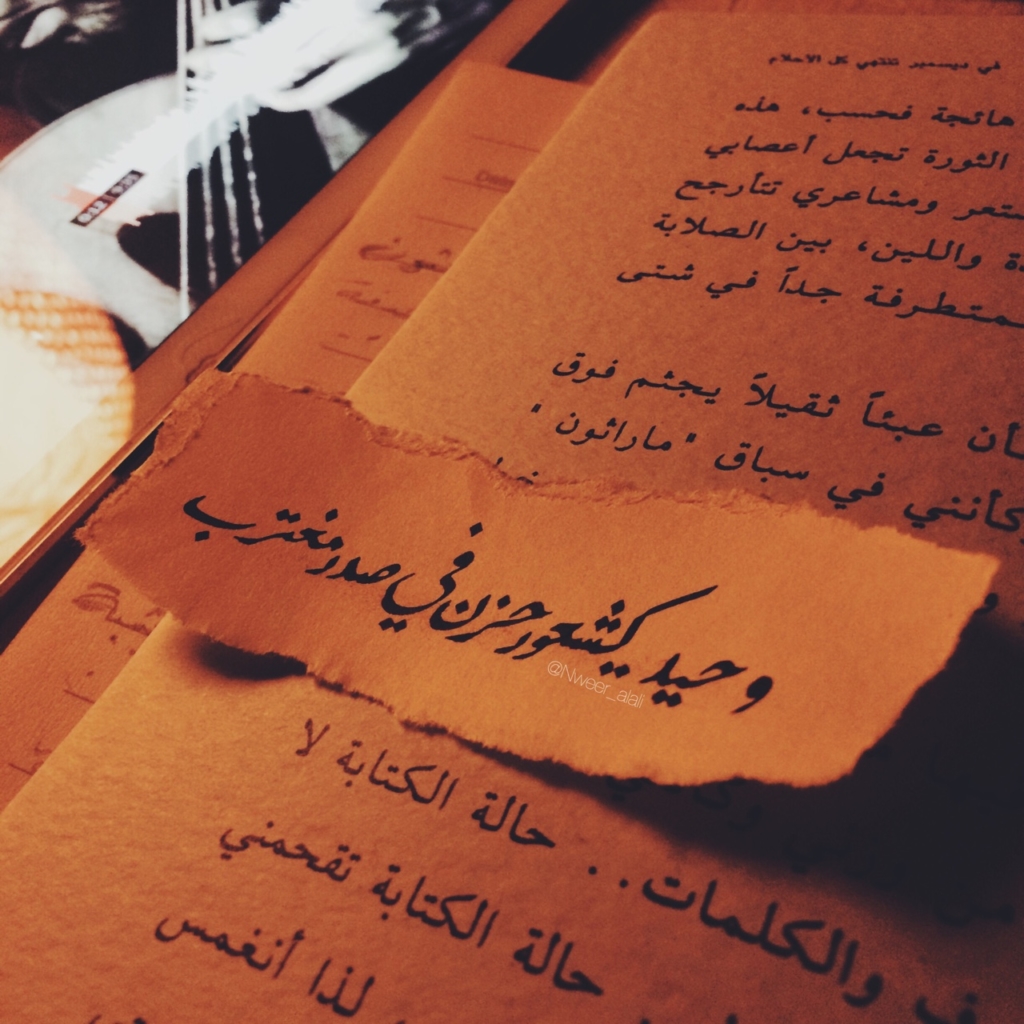 في ديسمبر تنتهي كل الاحلام
هائجة فحسب، هذه
الثورة تجعل أعصابي
ومشاعري تتأرجح
واللين، بين الصلابة
جداً في شتى
عبئاً ثقيلاً يجثم فوق
كأنني في سباق "ماراثون"
وحيد كشعور حزن في صدر مغترب
@Nweer_alali
والكلمات.. حالة الكتابة لا
حالة الكتابة تقحمني
لذا أنغمس